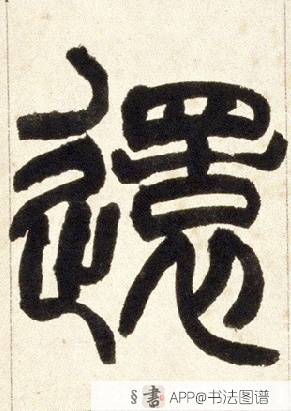 還
§ 書 APP@书法图谱